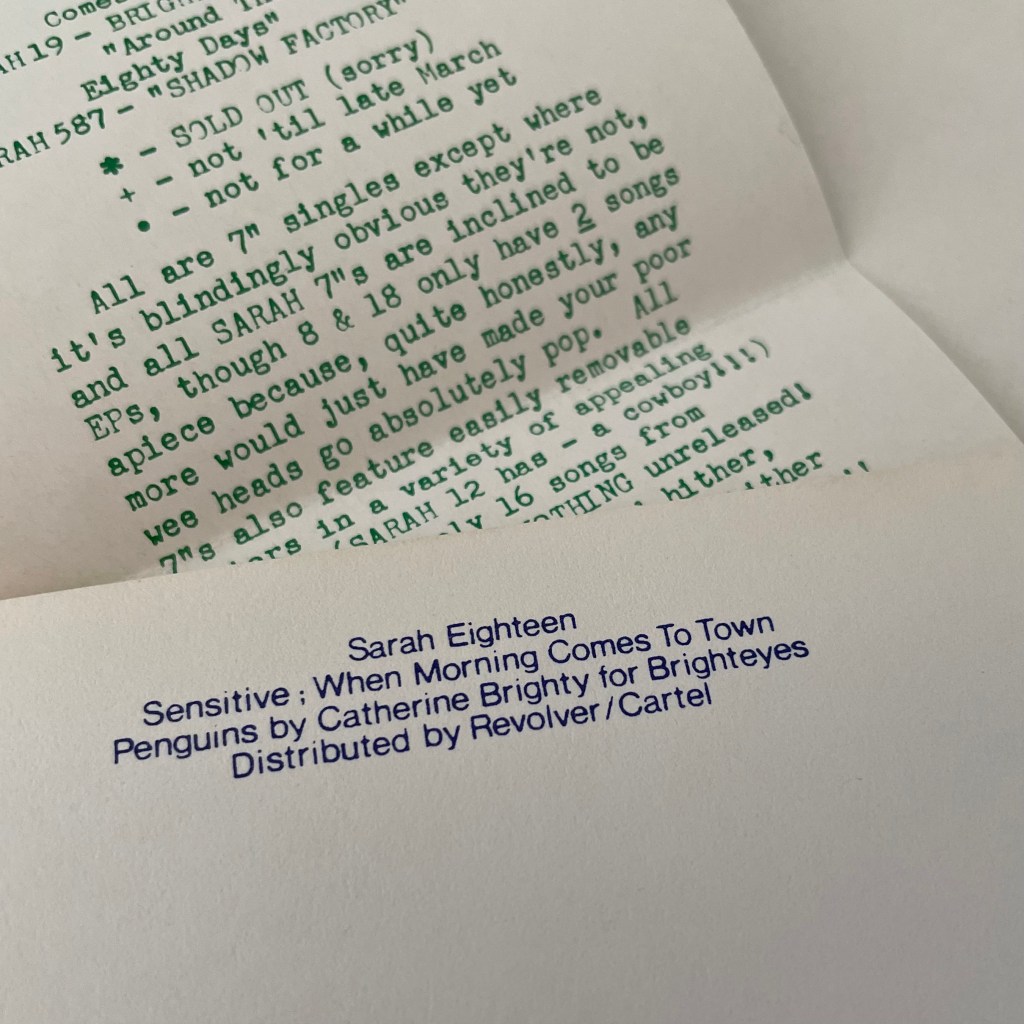 AH 19 - BRIGH
"Around Th
Eighty Days"
RAH 587 - "SHADOW FACTORY"
* - SOLD OUT (sorry)
+ - not 'til late March
• - not for a while yet
All are 7" singles except where
it's blindingly obvious they're not,
and all SARAH 7"s are inclined to be
EPs, though 8 & 18 only have 2 songs
apiece because, quite honestly, any
more would just have made your poor
wee heads go absolutely pop. All
7"s also feature easily removable
in a variety of appealing
(SARAH 12 has - a cowboy!!!)
16 songs from
NOTHING unreleased!
hither,
Sarah Eighteen
Sensitive ; When Morning Comes To Town
Penguins by Catherine Brighty for Brighteyes
Distributed by Revolver / Cartel